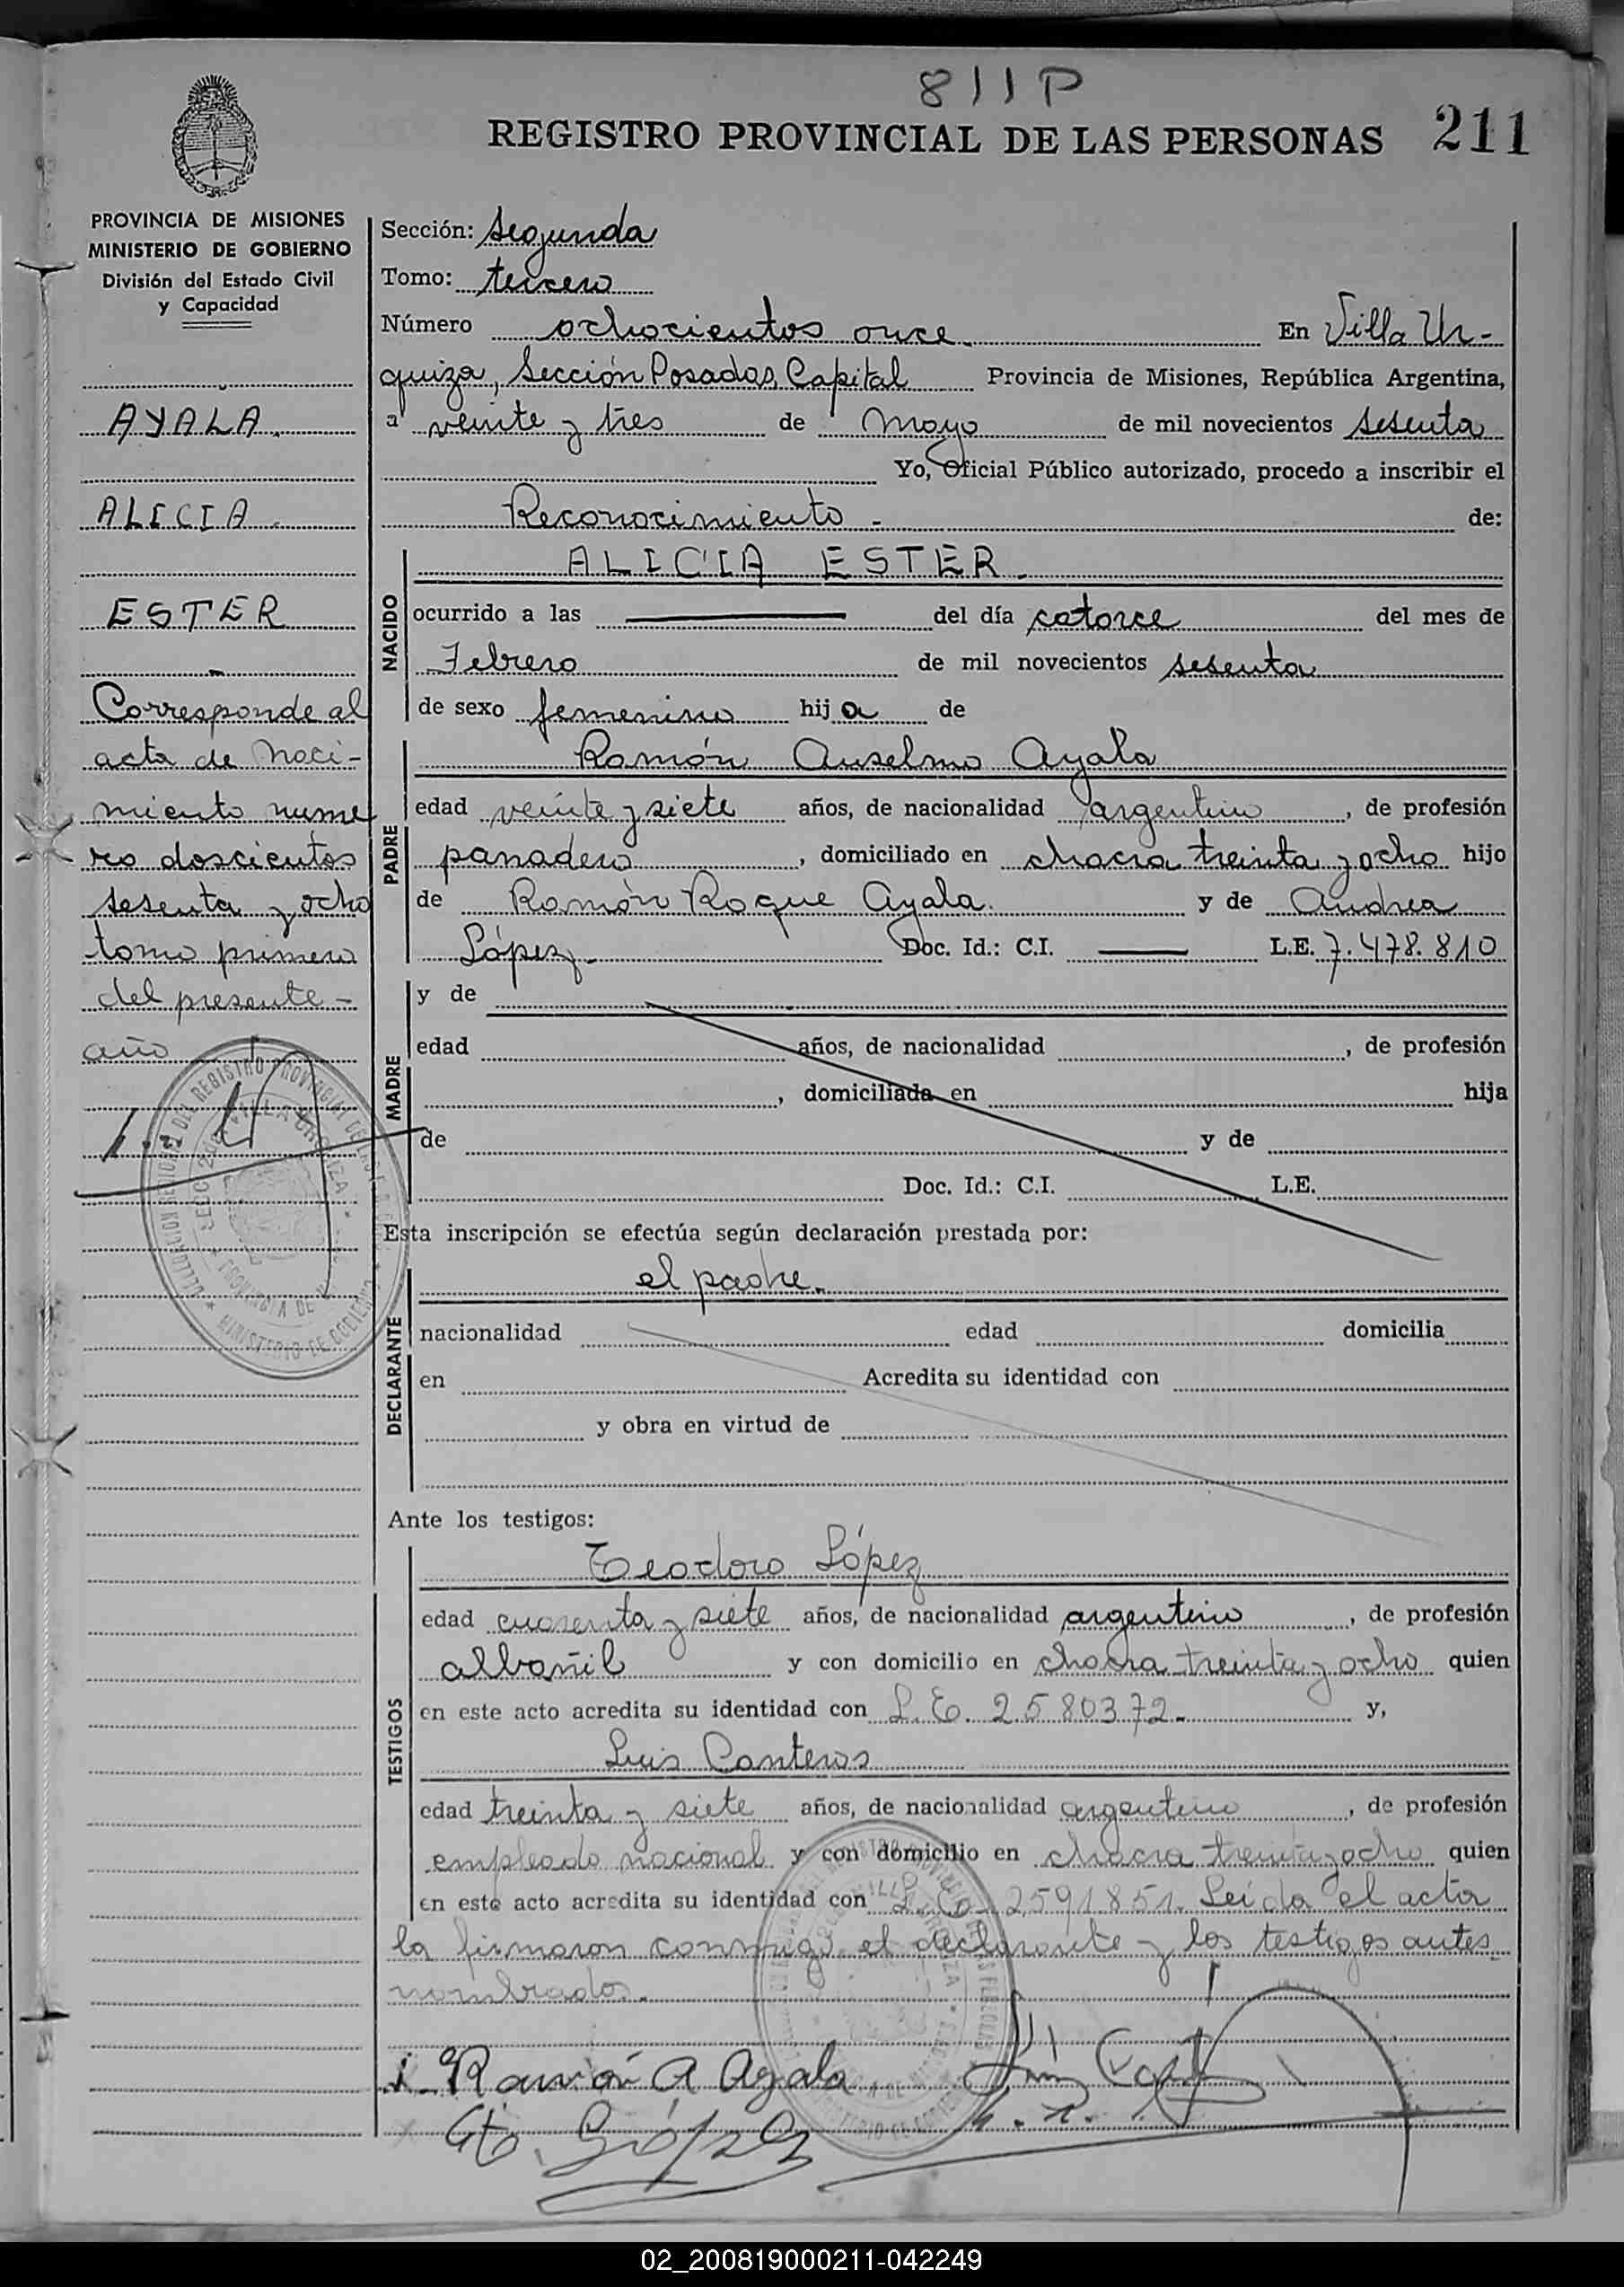 811 P
REGISTRO PROVINCIAL DE LAS PERSONAS 211
PROVINCIA DE MISIONES
MINISTERIO DE GOBIERNO
División del Estado Civil
y Capacidad
AYALA.
ALICIA.
ESTER
-
Corresponde al
acta de naci-
miento nume
ro doscientos
sesenta y ocho
tomo primero
del presente -
año
Sección: Segunda
Tomo: tercero
Número ochocientos once. En Villa Ur-
quiza, Sección Posadas, Capital Provincia de Misiones, República Argentina,
a veinte y tres de Mayo de mil novecientos sesenta
Yo, Oficial Público autorizado, procedo a inscribir el
Reconocimiento - de:
NACIDO
ALICIA ESTER.
ocurrido a las del día catorce del mes de
Febrero de mil novecientos sesenta
de sexo femenino hija de
PADRE
Ramón Anselmo Ayala
edad veinte y siete años, de nacionalidad argentino, de profesión
panadero, domiciliado en chacra treinta y ocho hijo
de Ramón Roque Ayala. y de Andrea
López.- Doc. Id.: C.I. L.E. 7.478.810
MADRE
y de
edad años, de nacionalidad , de profesión
, domiciliada en hija
de y de
Doc. Id.: C.I. L.E.
Esta inscripción se efectúa según declaración prestada por:
DECLARANTE
el padre.
nacionalidad edad domicilia
en Acredita su identidad con
y obra en virtud de
Ante los testigos:
TESTIGOS
Teodoro López
edad cuarenta y siete años, de nacionalidad argentino, de profesión
albañil y con domicilio en chacra treinta y ocho quien
en este acto acredita su identidad con L.E. 2580372.- y,
Luis Canteros
edad treinta y siete años, de nacionalidad argentino, de profesión
empleado nacional y con domicilio en chacra treinta y ocho quien
en este acto acredita su identidad con L.E. 2.591.851. Leída el acta
la firmaron conmigo el declarante y los testigos antes
nombrados.
Ramón A Ayala
López
02_200819000211-042249